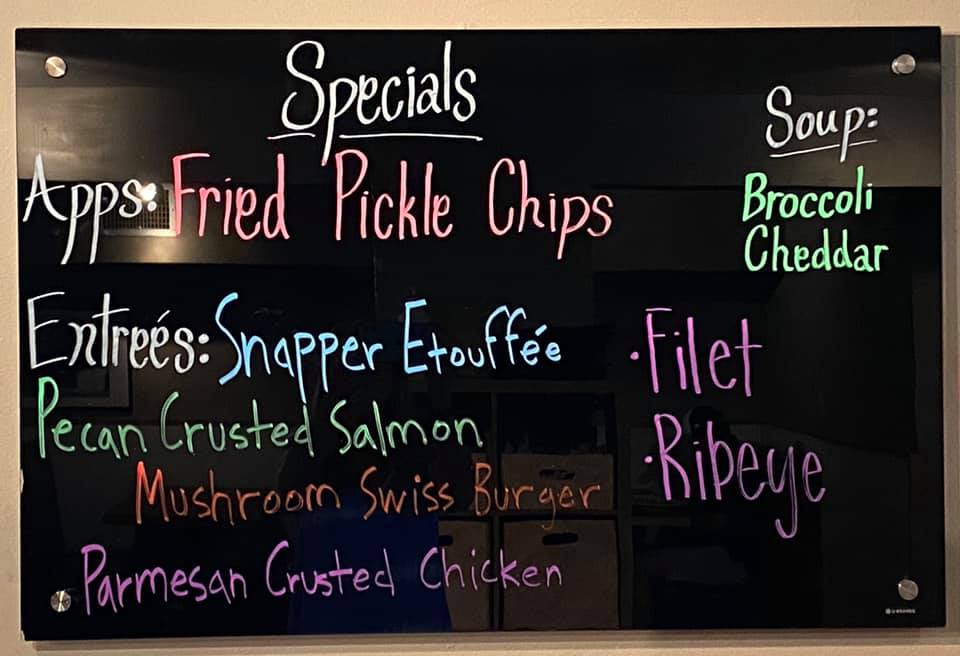 Specials
Apps: Fried Pickle Chips
Soup:
Broccoli
Cheddar
Entreés: Snapper Etouffée
Pecan Crusted Salmon
Mushroom Swiss Burger
Parmesan Crusted Chicken
·Filet
·Ribeye